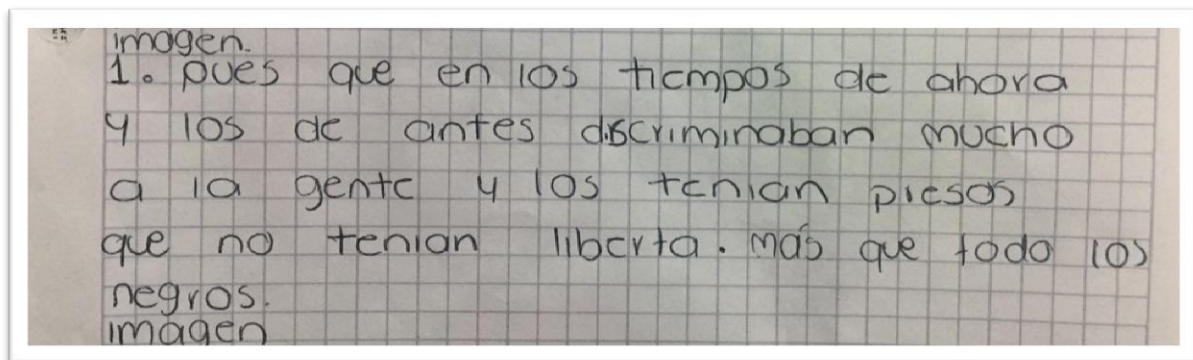 imagen.
1. pues que en los tiempos de ahora
y los de antes discriminaban mucho
a la gente y los tenian presos
que no tenian liberta. más que todo los
negros.
imagen